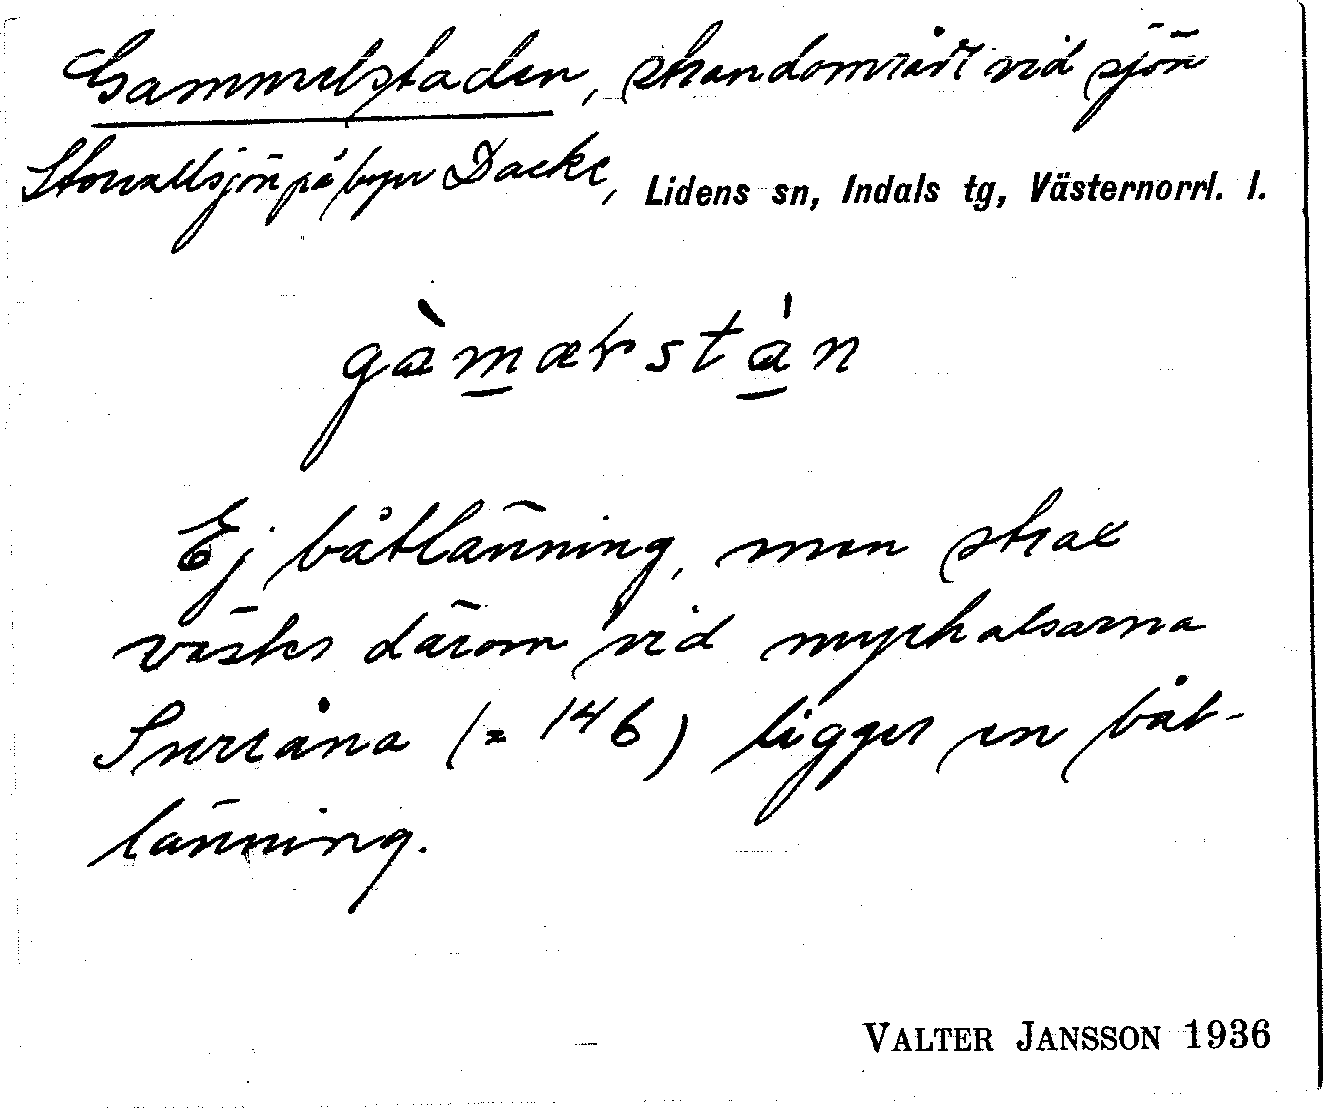 Gammelstaden, strandområde vid sjön
på byn Dacke, Lidens sn, Indals tg, Västernorrl. l.
gàmærstán
Ej båtlänning, men strax
väster därom vid myrhalsarna
(= 146) ligger en båt-
länning.
VALTER JANSSON 1936